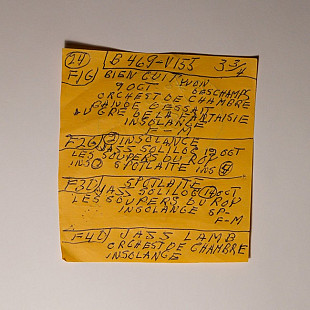 24 B469-V155 3-3/4
F1G BIEN CUIT YVON
9 OCT DESCHAMPS
ORCHEST DE CHAMBRE
BANDE D ESSAIT
AU GRE DE LA FANTAISIE
INSOLANGE
F-M
F2G INSOLANCE
JASS SOLILOG 19 OCT
LES SOUPERS DU ROY
INS SPGILAITE INS
F3D SPGILAITE
JASS SOLILOG 19 OCT
LES SOUPERS DU ROY
INSOLANGE SP-
F-M
F4D JASS LAMB
ORCHEST DE CHAMBRE
INSOLANGE